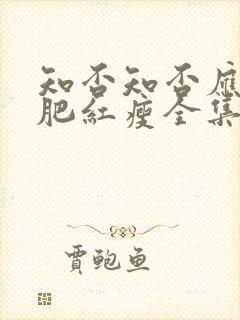 知否知否應
肥紅瘦全集
賈鲍鱼